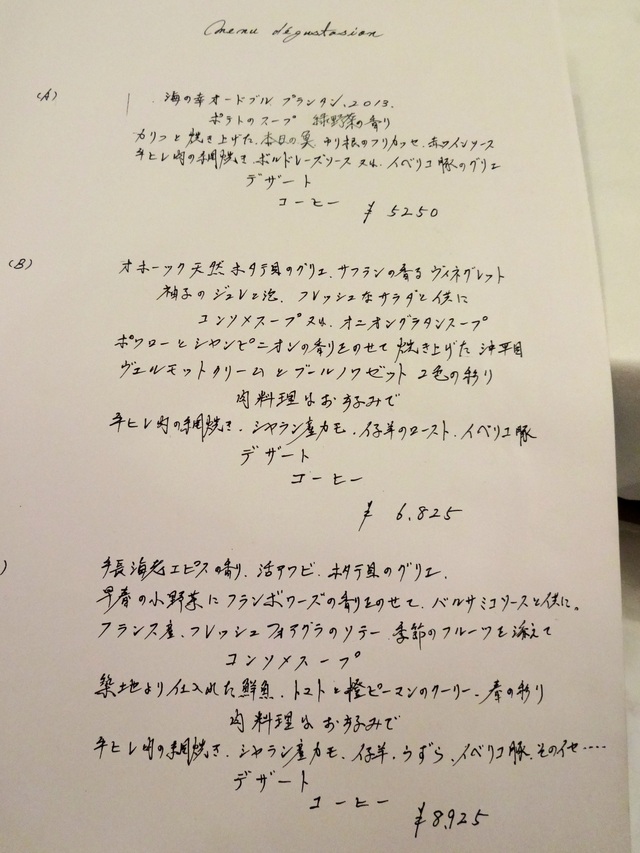 menu dégustasion
(A)
海の幸オードブル プランタン、2013.
ポテトのスープ 緑野菜の香り
カリッと焼き上げた、本日の魚 セリ根のフリカッセ、赤ワインソース
牛ヒレ肉の網焼き ボルドレーズソース 又は、イベリコ豚のグリエ
デザート
コーヒー ¥5250
(B)
オホーツク天然ホタテ貝のグリエ、サフランの香る ヴィネグレット
柚子のジュレと泡、フレッシュなサラダと供に
コンソメスープ 又は、オニオングラタンスープ
ポワローとシャンピニオンの香りをのせて 焼き上げた 沖平目
ヴェルモットクリームとブールノワゼット 2色の彩り
肉料理はお好みで
牛ヒレ肉の網焼き、シャラン産カモ、仔羊のロースト、イベリコ豚
デザート
コーヒー
¥ 6,825
)
手長海老エピスの香り、活アワビ、ホタテ貝のグリエ、
早春の小野菜にフランボワーズの香りをのせて、バルサミコソースと供に。
フランス産、フレッシュフォアグラのソテー 季節のフルーツを添えて
コンソメスープ
築地より仕入れた鮮魚、トマトと橙ピーマンのクーリー、春の彩り
肉料理はお好みで
牛ヒレ肉の網焼き、シャラン産カモ、仔羊、うずら、イベリコ豚、その他‥‥
デザート
コーヒー
¥8,925